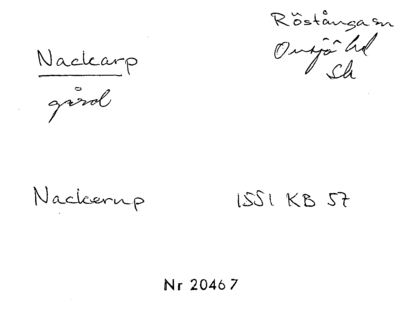 Röstånga sn
Onsjö hd
Sk
Nackarp
gård
Nackerup 1551 KB 57
Nr 20467